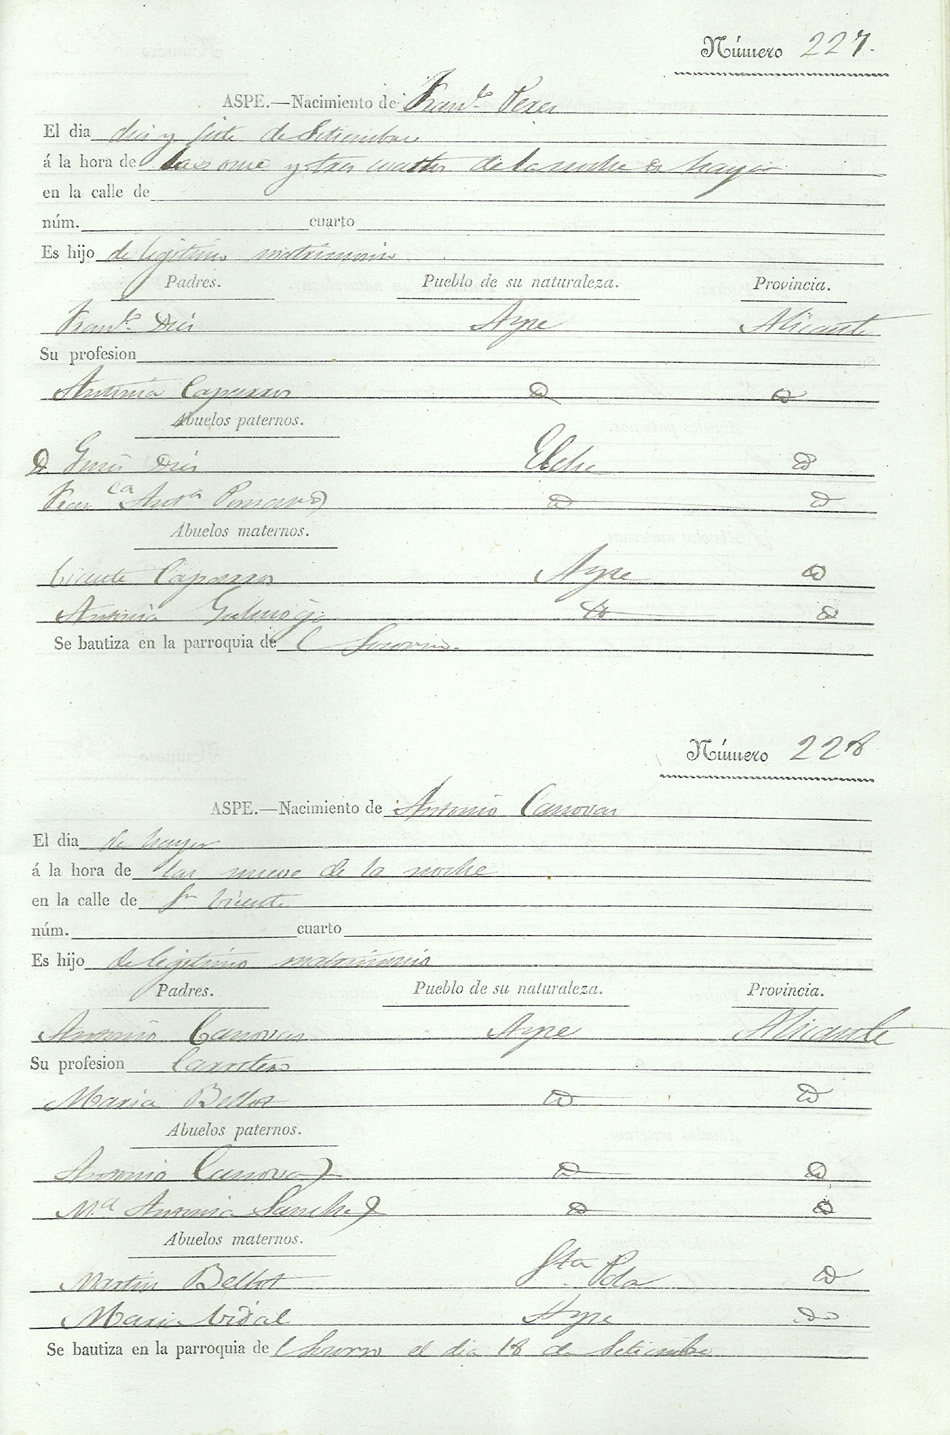 Número 227.
ASPE.—Nacimiento de Fran.co Perez
El dia diez y siete de Setiembre
á la hora de las once y tres cuartos de la noche de hayer
en la calle de
núm. cuarto
Es hijo de legitimo matrimonio
Padres. Pueblo de su naturaleza. Provincia.
Fran.co Aspe Alicante
Su profesion
Antonia Caparros D D
Abuelos paternos.
D Gines Elche D
Fran.ca Ant.a D D
Abuelos maternos.
Vicente Caparros Aspe D
Antonia D D
Se bautiza en la parroquia del Socorro.
Número 228
ASPE.—Nacimiento de Antonio Canovas
El dia de hayer
á la hora de las nueve de la noche
en la calle de Sn Vicente
núm. cuarto
Es hijo de legitimo matrimonio
Padres. Pueblo de su naturaleza. Provincia.
Antonio Canovas Aspe Alicante
Su profesion Carretero
Maria Bellot D D
Abuelos paternos.
Antonio Canovas D D
M.a Antonia Sanchez D D
Abuelos maternos.
Martin Bellot Sta. Pola D
Maria Vidal Aspe Do
Se bautiza en la parroquia del Socorro el dia 18 de Setiembre